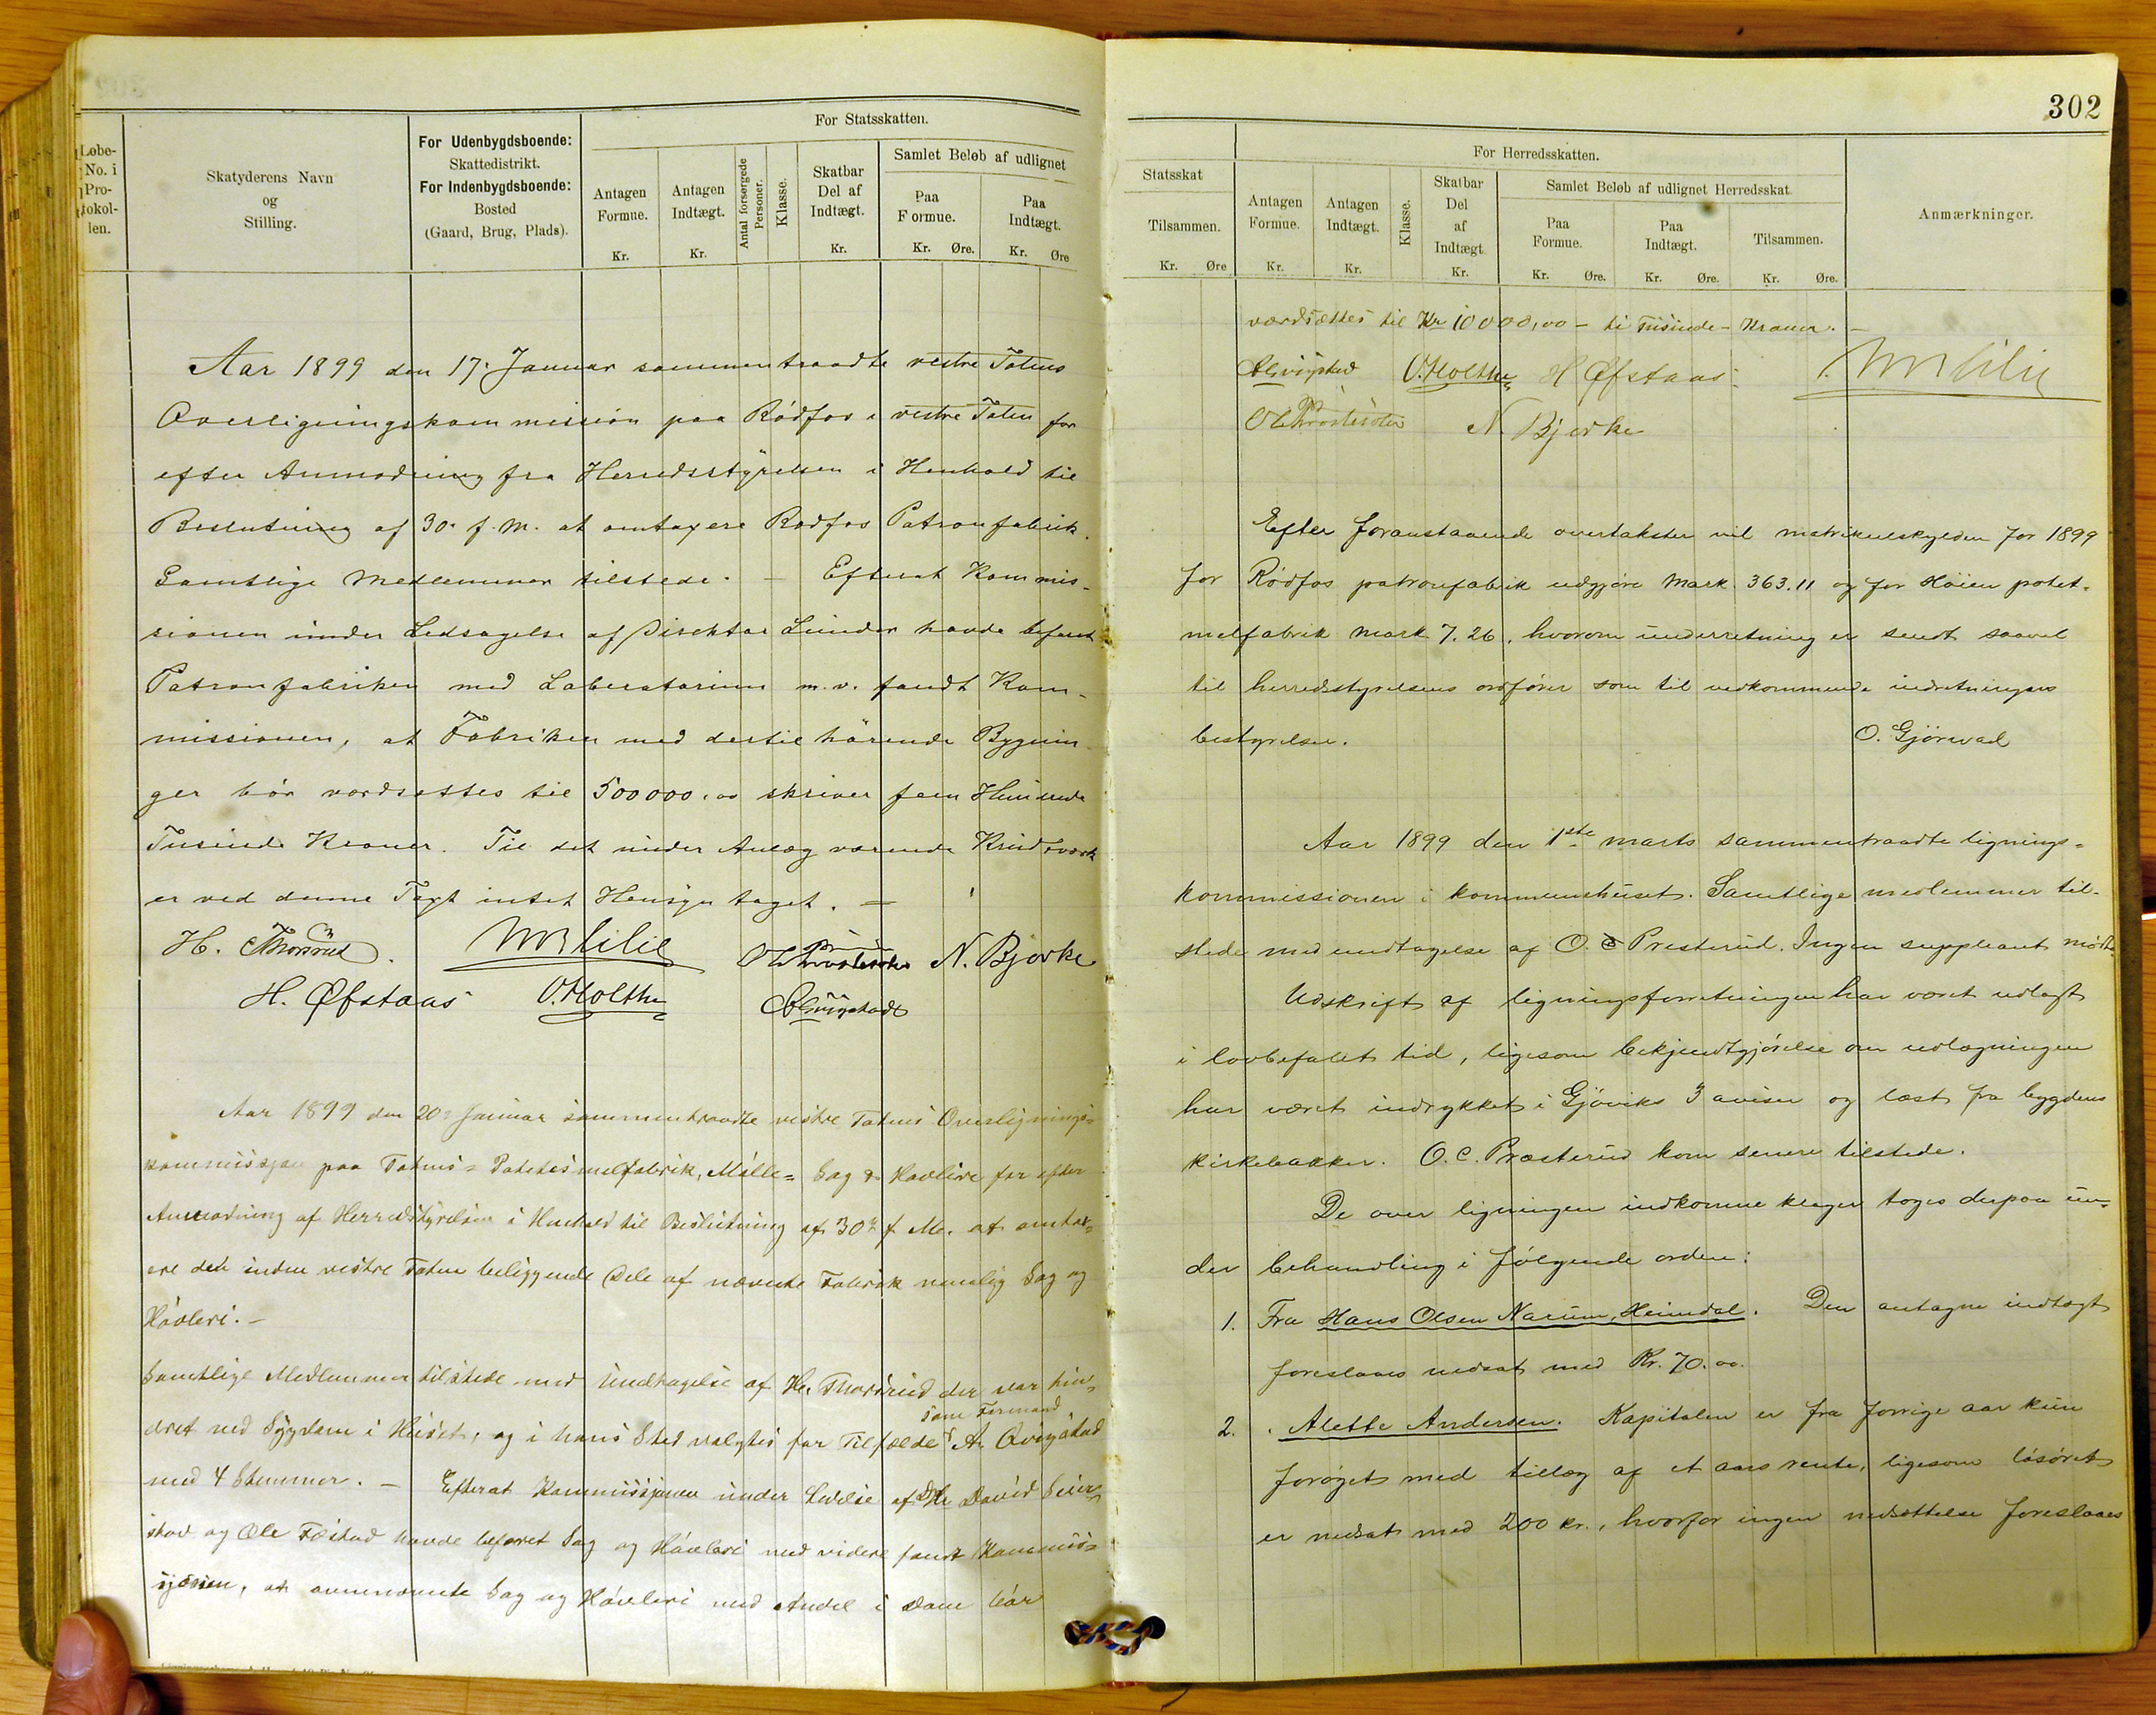 Løbe-
No. i
Pro-
tokol-
len.
Skatyderens Navn
og
Stilling.
For Udenbygdsboende:
Skattedistrikt.
For Indenbygdsboende:
Bosted
(Gaard, Brug, Plads).
For Statsskatten.
Antagen
Formue.
Kr.
Antagen
Indtægt.
Kr.
Antal forsørgede
Personer.
Klasse.
Skatbar
Del af
Indtægt.
Kr.
Samlet Beløb af udlignet
Paa
Formue.
Kr. Øre.
Paa
Indtægt.
Kr. Øre
Aar 1899 den 17. Januar sammentraadte vestre Totens
Overligningskommission paa Rödfos i vestre Toten for
efter Anmodning fra Herredsstyrelsen i Henhold til
Beslutning af 30. f. M. at omtaxere Rødfos Patronfabrik.
Samtlige Medlemmer tilstede. – Efterat Kommis-
sionen under Ledsagelse af Direktør Lunder havde befaret
Patronfabriken med Laboratorium m. v. fandt Kom-
missionen, at Fabriken med dertil hörende Bygnin-
ger bör værdsættes til 500 000.00 skriver fem Hundrede
Tusinde Kroner. Til det under Anlæg værende Krudtværk
er ved denne Taxt intet Hensyn taget. –
H. Thorsrud. N. Bjerke
H. Øfstaas O. Holthe
Aar 1899 den 20. Januar sammentraadte vestre Totens Overlignings-
kommissjon paa Totens Potetesmelfabrik, Mölle- Sag & Hövleri for efter
Anmodning af Herredsstyrelsen i Henhold til Beslutning af 30te f. M. at omtax-
ere den inden vestre Toten beliggende Dele af nævnte Fabrik nemlig Sag og
Hövleri. –
Samtlige Medlemmer tilstede med Undtagelse af Hr. Thorsrud der var hin-
som Formand
dret ved Sygdom i Huset, og i hans Sted valgtes for Tilfældet A. Qvigstad
med 4 Stemmer. – Efterat Kommissjonen under Ledelse af Hr David Seier-
stad og Ole Fæstad havde befaret Sag og Hövleri med videre fandt Kommis-
sjonen, at ovennævnte Sag og Hövleri med Andel i Dam bör
302
Statsskat
Tilsammen.
Kr. Øre
For Herredsskatten.
Antagen
Formue.
Kr.
Antagen
Indtægt.
Kr.
Klasse.
Skatbar
Del
af
Indtægt
Kr.
Samlet Beløb af udlignet Herredsskat
Paa
Formue.
Kr. Øre.
Paa
Indtægt.
Kr. Øre.
Tilsammen.
Kr. Øre.
Anmærkninger.
værdsættes til Kr 10 000,00 – ti Tusinde – Kroner. –
O. Holthe H Øfstaas
N. Bjerke
Efter foranstaaende overtakster vil matrikulskylden for 1899
for Rödfos patronfabrik udgjøre mark 363.11 og for Höien potet-
melfabrik mark 7.26, hvorom underretning er sendt saavel
til herredsstyrelsens ordförer som til vedkommende indretningers
bestyrelse.
O. Gjörvad
Aar 1899 den 1ste marts sammentraadte lignings-
kommissionen i kommunehuset. Samtlige medlemmer til-
stede med undtagelse af O. C Presterud. Ingen suppleant mødte.
Udskrift af ligningsforretningen har været udlagt
i lovbefalet tid, ligesom bekjendtgjörelse om udlægningen
har været indrykket i Gjöviks 3 aviser og læst fra bygdens
kirkebakker. O. C. Præsterud kom senere tilstede.
De over ligningen indkomne klager toges derpaa un-
der behandling i følgende orden:
1. Fra Hans Olsen Narum, Heimdal. Den antagne indtægt
foreslaaes nedsat med Kr. 70.00.
2. Alette Andersen. Kapitalen er fra forrige aar kun
forøget med tillæg af et aars rente, ligesom lösöret
er nedsat med 200 kr., hvorfor ingen nedsættelse foreslaaes